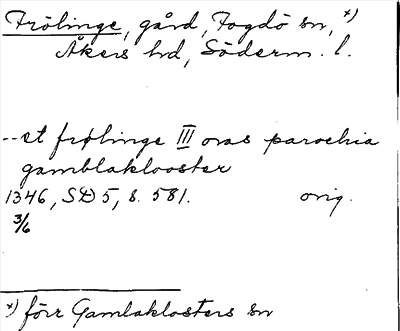 Frölinge, gård, Fogdö sn, x)
Åkers hd, Söderm. l.
--et frølinge III oras parochia
gamblaklooster
1346, SD 5, s. 581. orig.
3/6
x) förr Gamlaklosters sn